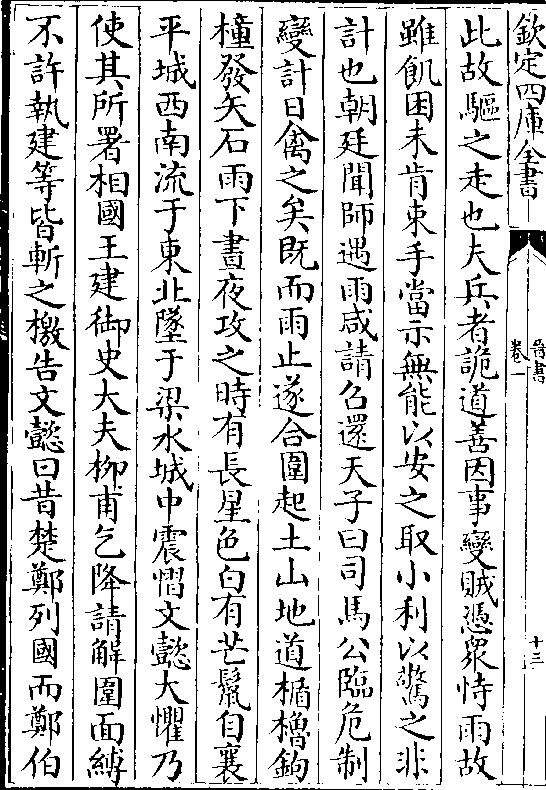 欽定四庫全書
晉書
卷一
十三
此故驅之走也夫兵者詭道善因事變賊憑衆恃雨故
雖飢困未肯束手當示無能以安之取小利以驚之非
計也朝廷聞師遇雨咸請召還天子曰司馬公臨危制
變計日禽之矣既而雨止遂合圍起土山地道楯櫓鉤
橦發矢石雨下晝夜攻之時有長星色白有芒鬛自襄
平城西南流于東北墜于梁水城中震慴文懿大懼乃
使其所署相國王建御史大夫柳甫乞降請解圍面縛
不許執建等皆斬之檄告文懿曰昔楚鄭列國而鄭伯